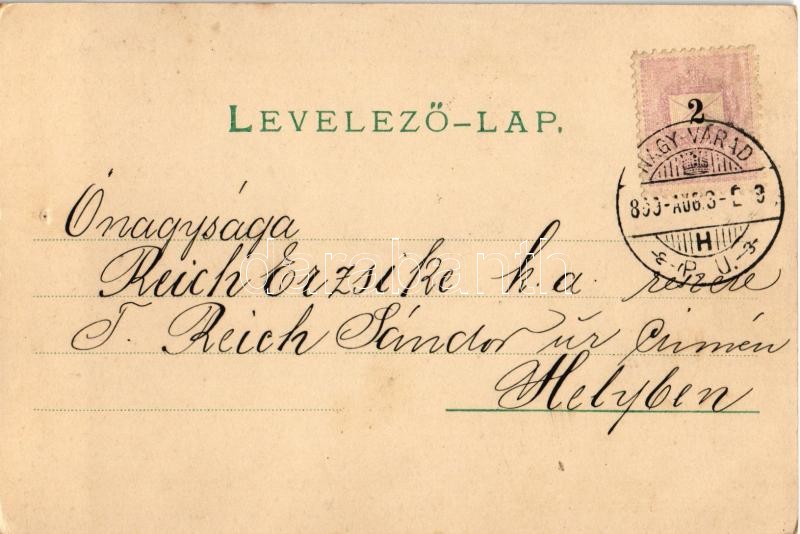 LEVELEZŐ-LAP.
2
NAGY-VÁRAD
H
Ő nagysága
Reich Erzsike k. a. részére
T. Reich Sándor úr czimén
Helyben
darabanth